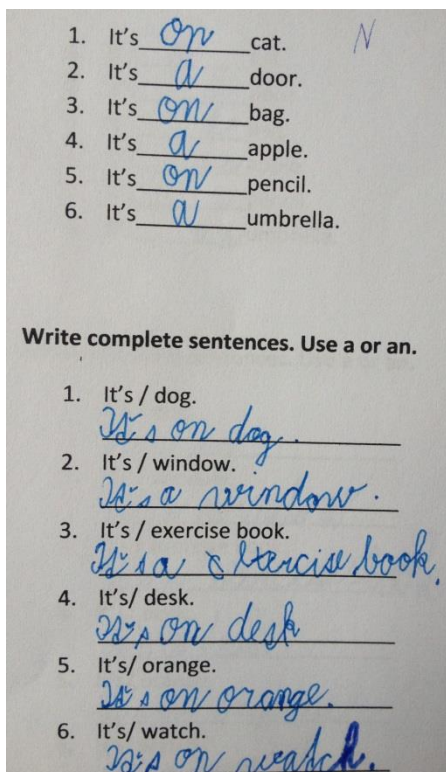 1. It's on cat. N
2. It's a door.
3. It's on bag.
4. It's a apple.
5. It's on pencil.
6. It's a umbrella.
Write complete sentences. Use a or an.
1. It's / dog.
It's on dog.
2. It's / window.
It's a window.
3. It's / exercise book.
It's a exercise book.
4. It's/ desk.
It's on desk
5. It's/ orange.
It's on orange.
6. It's/ watch.
It's on watch.